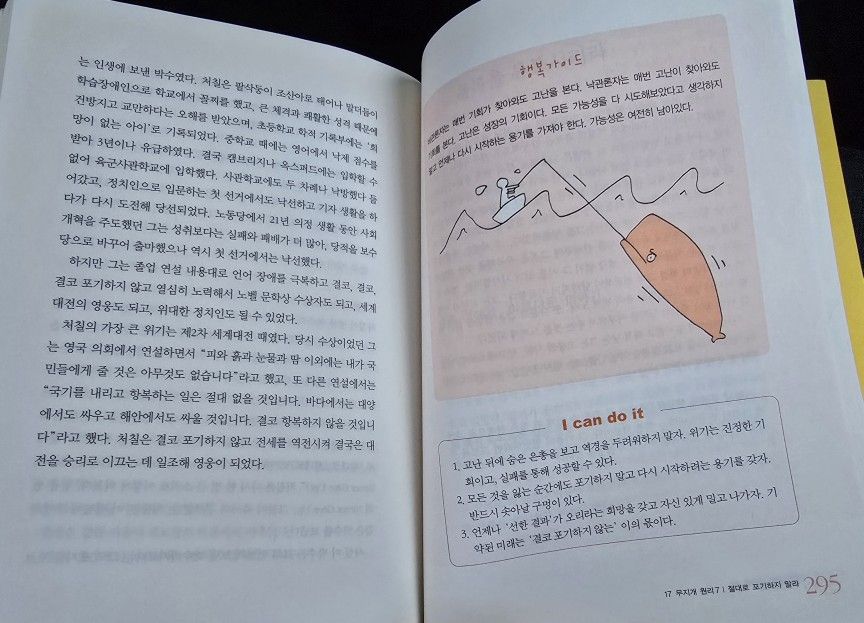 는 인생에 보낸 박수였다. 처칠은 팔삭둥이 조산아로 태어나 말더듬이
학습장애인으로 학교에서 꼴찌를 했고, 큰 체격과 쾌활한 성격 때문에
건방지고 교만하다는 오해를 받았으며, 초등학교 학적 기록부에는 ‘희
망이 없는 아이’로 기록되었다. 중학교 때에는 영어에서 낙제 점수를
받아 3년이나 유급하였다. 결국 캠브리지나 옥스퍼드에는 입학할 수
없어 육군사관학교에 입학했다. 사관학교에도 두 차례나 낙방했다 들
어갔고, 정치인으로 입문하는 첫 선거에서도 낙선하고 기자 생활을 하
다가 다시 도전해 당선되었다. 노동당에서 21년 의정 생활 동안 사회
개혁을 주도했던 그는 성취보다는 실패와 패배가 더 많아, 당적을 보수
당으로 바꾸어 출마했으나 역시 첫 선거에서는 낙선했다.
하지만 그는 졸업 연설 내용대로 언어 장애를 극복하고 결코, 결코,
결코 포기하지 않고 열심히 노력해서 노벨 문학상 수상자도 되고, 세계
대전의 영웅도 되고, 위대한 정치인도 될 수 있었다.
처칠의 가장 큰 위기는 제2차 세계대전 때였다. 당시 수상이었던 그
는 영국 의회에서 연설하면서 “피와 흙과 눈물과 땀 이외에는 내가 국
민들에게 줄 것은 아무것도 없습니다”라고 했고, 또 다른 연설에서는
“국기를 내리고 항복하는 일은 절대 없을 것입니다. 바다에서는 대양
에서도 싸우고 해안에서도 싸울 것입니다. 결코 항복하지 않을 것입니
다”라고 했다. 처칠은 결코 포기하지 않고 전세를 역전시켜 결국은 대
전을 승리로 이끄는 데 일조해 영웅이 되었다.
행복가이드
비관론자는 매번 기회가 찾아와도 고난을 본다. 낙관론자는 매번 고난이 찾아와도
기회를 본다. 고난은 성장의 기회이다. 모든 가능성을 다 시도해보았다고 생각하지
말고 언제나 다시 시작하는 용기를 가져야 한다. 가능성은 여전히 남아있다.
I can do it
1. 고난 뒤에 숨은 은총을 보고 역경을 두려워하지 말자. 위기는 진정한 기
회이고, 실패를 통해 성공할 수 있다.
2. 모든 것을 잃는 순간에도 포기하지 말고 다시 시작하려는 용기를 갖자.
반드시 솟아날 구멍이 있다.
3. 언제나 ‘선한 결과’가 오리라는 희망을 갖고 자신 있게 밀고 나가자. 기
약된 미래는 ‘결코 포기하지 않는’ 이의 몫이다.
17 무지개 원리 7 | 절대로 포기하지 말라 295